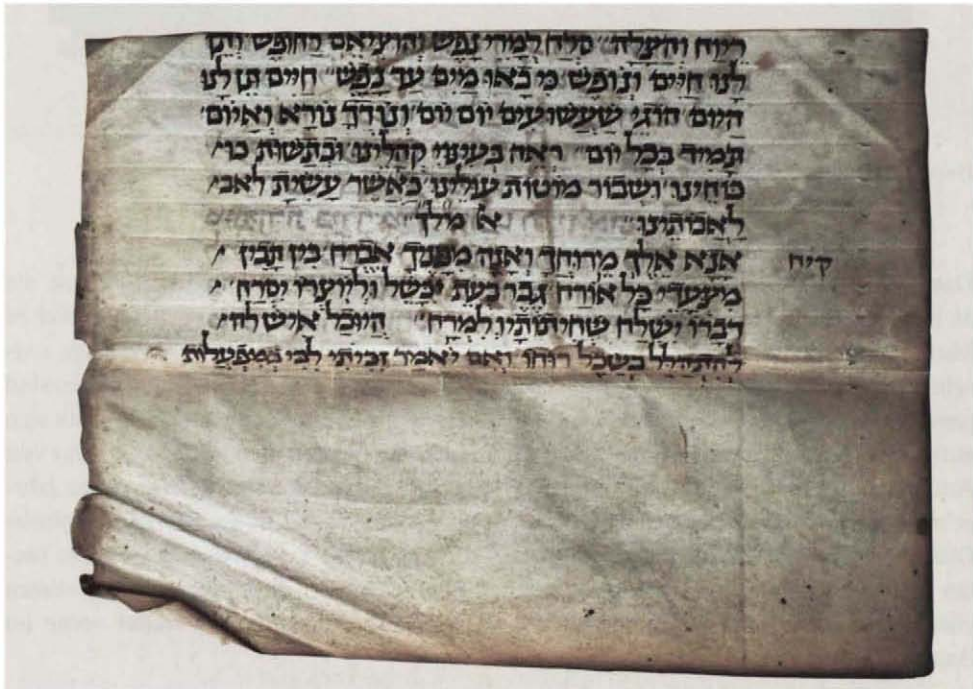 ריוח והעלה סלח למרי נפש והוציאם לחופש ותן
לנו חיים ונופש מי באו מים עד נפש חיים תן לנו
היום הוגי שעשועים יום יום ונודך נורא ואיום
תמיד בכל יום ראה בעינוי קהלינו ובתשות כו
כוחינו ושבור מוטות עולינו כאשר עשית לאבו
לאבותינו אל מלך
קיח
אנא אלך מרוחך ואנה מפניך אברח בין תבין
מצעדי כל אורח גבר בעת יכשל וליוערו יסרח
דברו ישלח שחיתותיו למרח היוכל איש לה
להתהלל בשכל רוחו ואם יאמר זכיתי לבי במפעלות